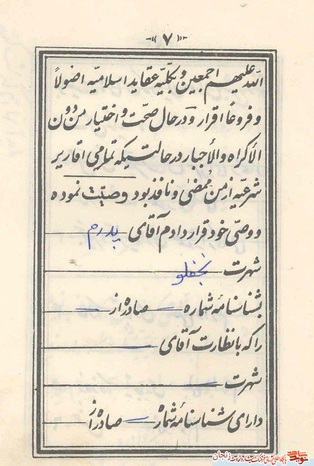 «۷»
الله علیهم اجمعین و بکلیّه عقاید اسلامیه اصولاً
و فروعاً اقرار و در حال صحّت و اختیار من دون
الاکراه والاجبار در حالتیکه تمامی اقاریر
شرعیه از من مُمضیٰ و نافذ بود وصیّت نموده
و وصیّ خود قرار دادم آقای پدرم
شهرت نجفلو
بشناسنامه شماره صادره از
را که با نظارت آقای
شهرت
دارای شناسنامه شماره صادره از